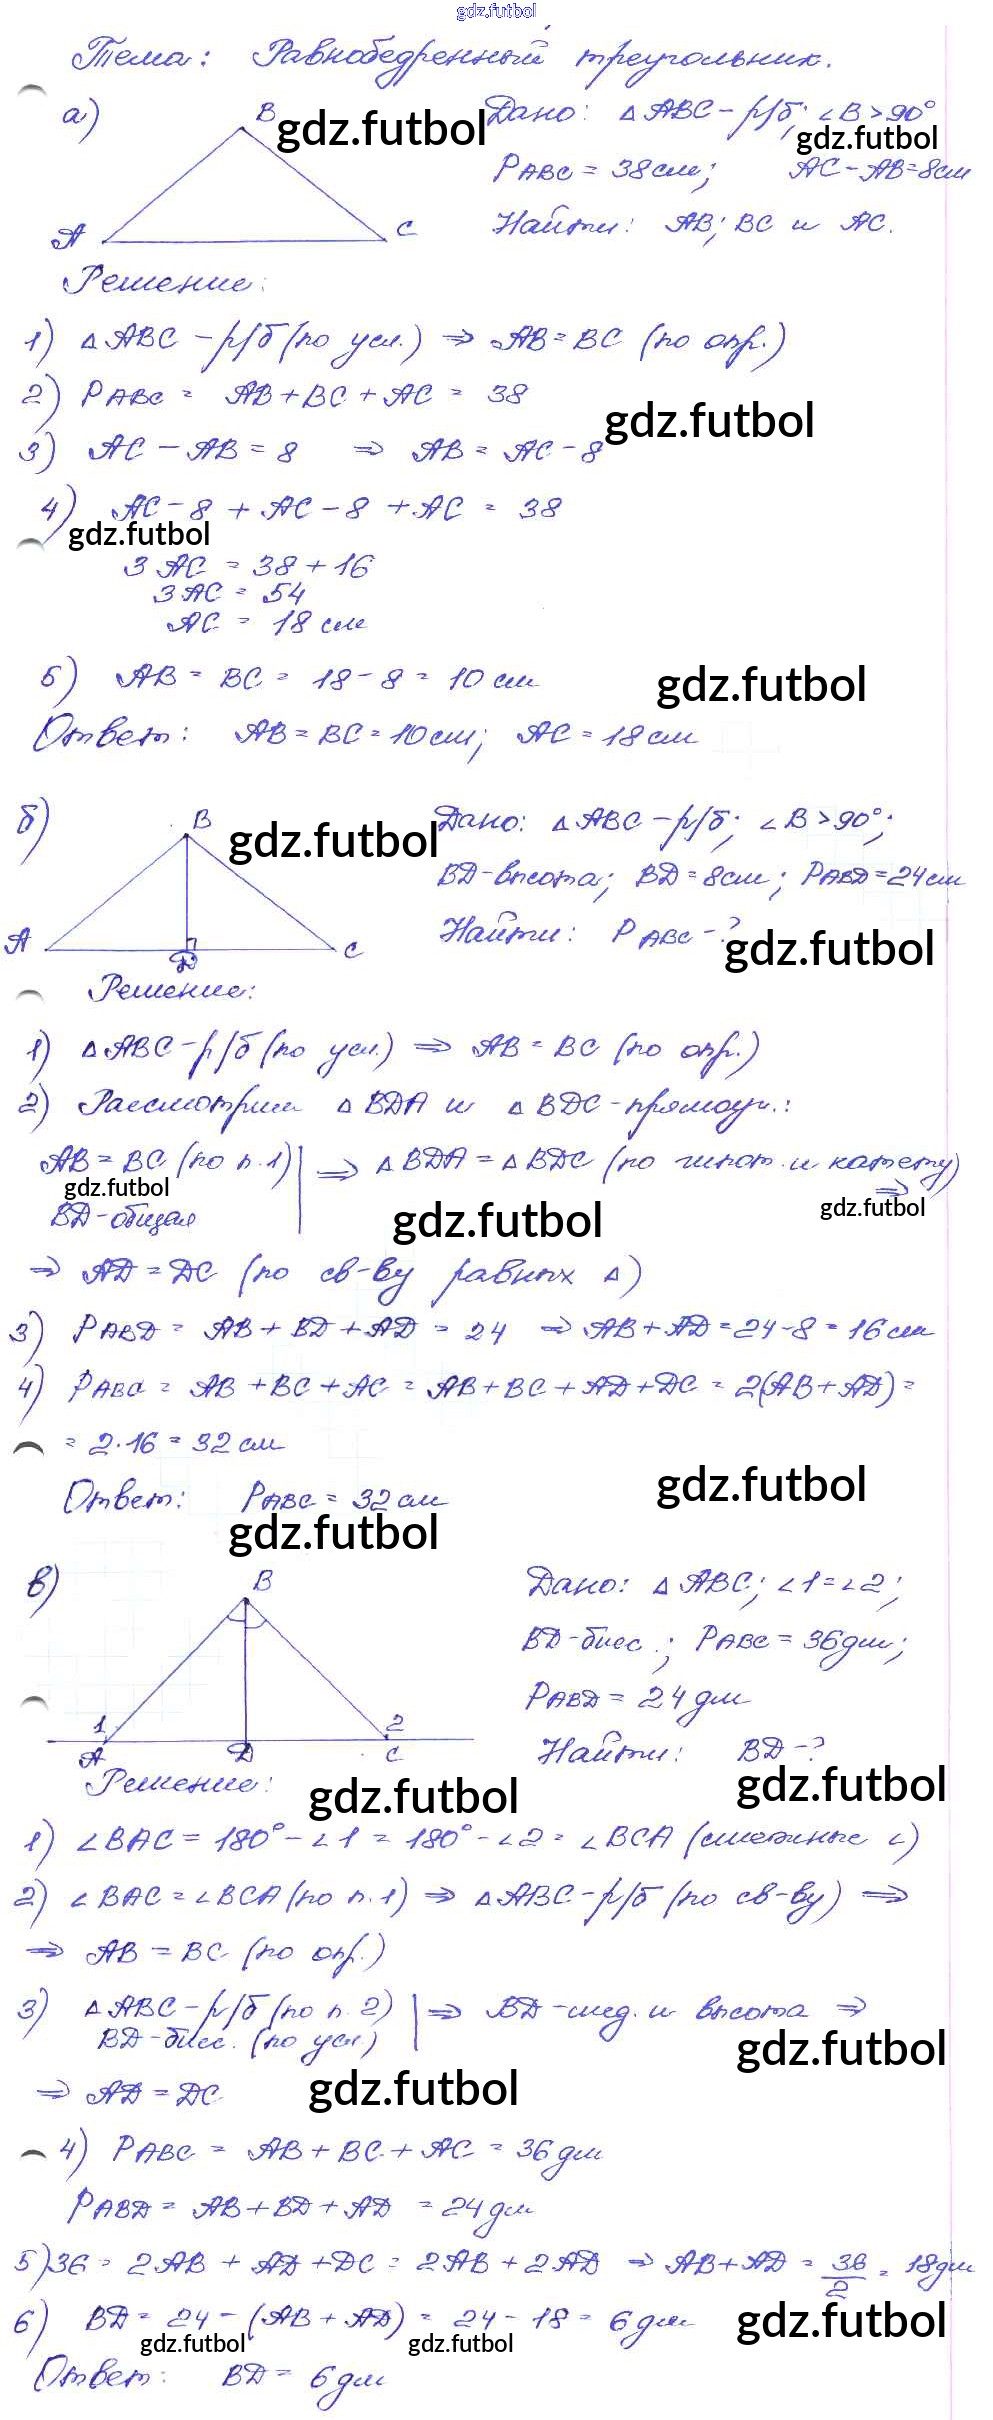 gdz.futbol
Тема: Равнобедренный треугольник.
а) B gdz.futbol Дано: △ABC – р/б; ∠B > 90°
gdz.futbol
P ABC = 38 см; AC – AB = 8 см
A C Найти: AB; BC и AC.
Решение:
1) △ABC – р/б (по усл.) ⇒ AB = BC (по опр.)
2) P ABC = AB + BC + AC = 38
gdz.futbol
3) AC – AB = 8 ⇒ AB = AC – 8
4) AC – 8 + AC – 8 + AC = 38
gdz.futbol
3 AC = 38 + 16
3 AC = 54
AC = 18 см
5) AB = BC = 18 – 8 = 10 см
gdz.futbol
Ответ: AB = BC = 10 см; AC = 18 см
б) B gdz.futbol Дано: △ABC – р/б; ∠B > 90°;
BD – высота; BD = 8 см; P ABD = 24 см
A D C Найти: P ABC – ?
gdz.futbol
Решение:
1) △ABC – р/б (по усл.) ⇒ AB = BC (по опр.)
2) Рассмотрим △BDA и △BDC – прямоуг.:
AB = BC (по п.1) | ⇒ △BDA = △BDC (по гипот. и катету) ⇒
gdz.futbol gdz.futbol gdz.futbol
BD – общая
⇒ AD = DC (по св-ву равных △)
3) P ABD = AB + BD + AD = 24 ⇒ AB + AD = 24 – 8 = 16 см
4) P ABC = AB + BC + AC = AB + BC + AD + DC = 2(AB + AD) =
= 2·16 = 32 см
gdz.futbol
Ответ: P ABC = 32 см
gdz.futbol
в) B Дано: △ABC; ∠1 = ∠2;
BD – бисс.; P ABC = 36 дм;
P ABD = 24 дм
1 2
A D C Найти: BD – ?
Решение: gdz.futbol gdz.futbol
1) ∠BAC = 180° – ∠1 = 180° – ∠2 = ∠BCA (смежные ∠)
2) ∠BAC = ∠BCA (по п.1) ⇒ △ABC – р/б (по св-ву) ⇒
⇒ AB = BC (по опр.)
3) △ABC – р/б (по п. 2) | ⇒ BD – мед. и высота ⇒
BD – бисс. (по усл)
gdz.futbol
⇒ AD = DC gdz.futbol
4) P ABC = AB + BC + AC = 36 дм
P ABD = AB + BD + AD = 24 дм
5) 36 = 2AB + AD + DC = 2AB + 2AD ⇒ AB + AD = 36/2 = 18 дм
6) BD = 24 – (AB + AD) = 24 – 18 = 6 дм gdz.futbol
gdz.futbol gdz.futbol
Ответ: BD = 6 дм